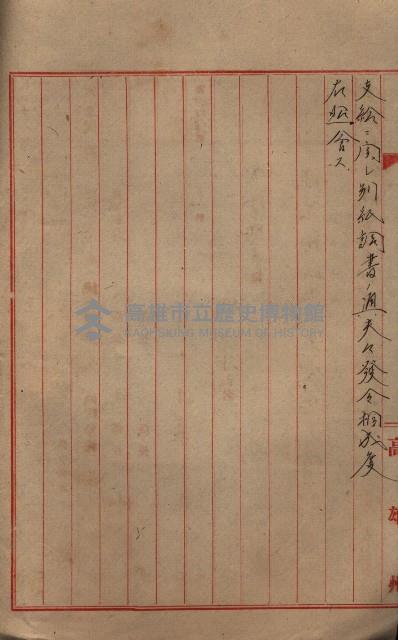 支給ニ関シ別紙調書ノ通夫々發令相成度
右照會ス
高雄州
高雄市立歷史博物館
KAOHSIUNG MUSEUM OF HISTORY